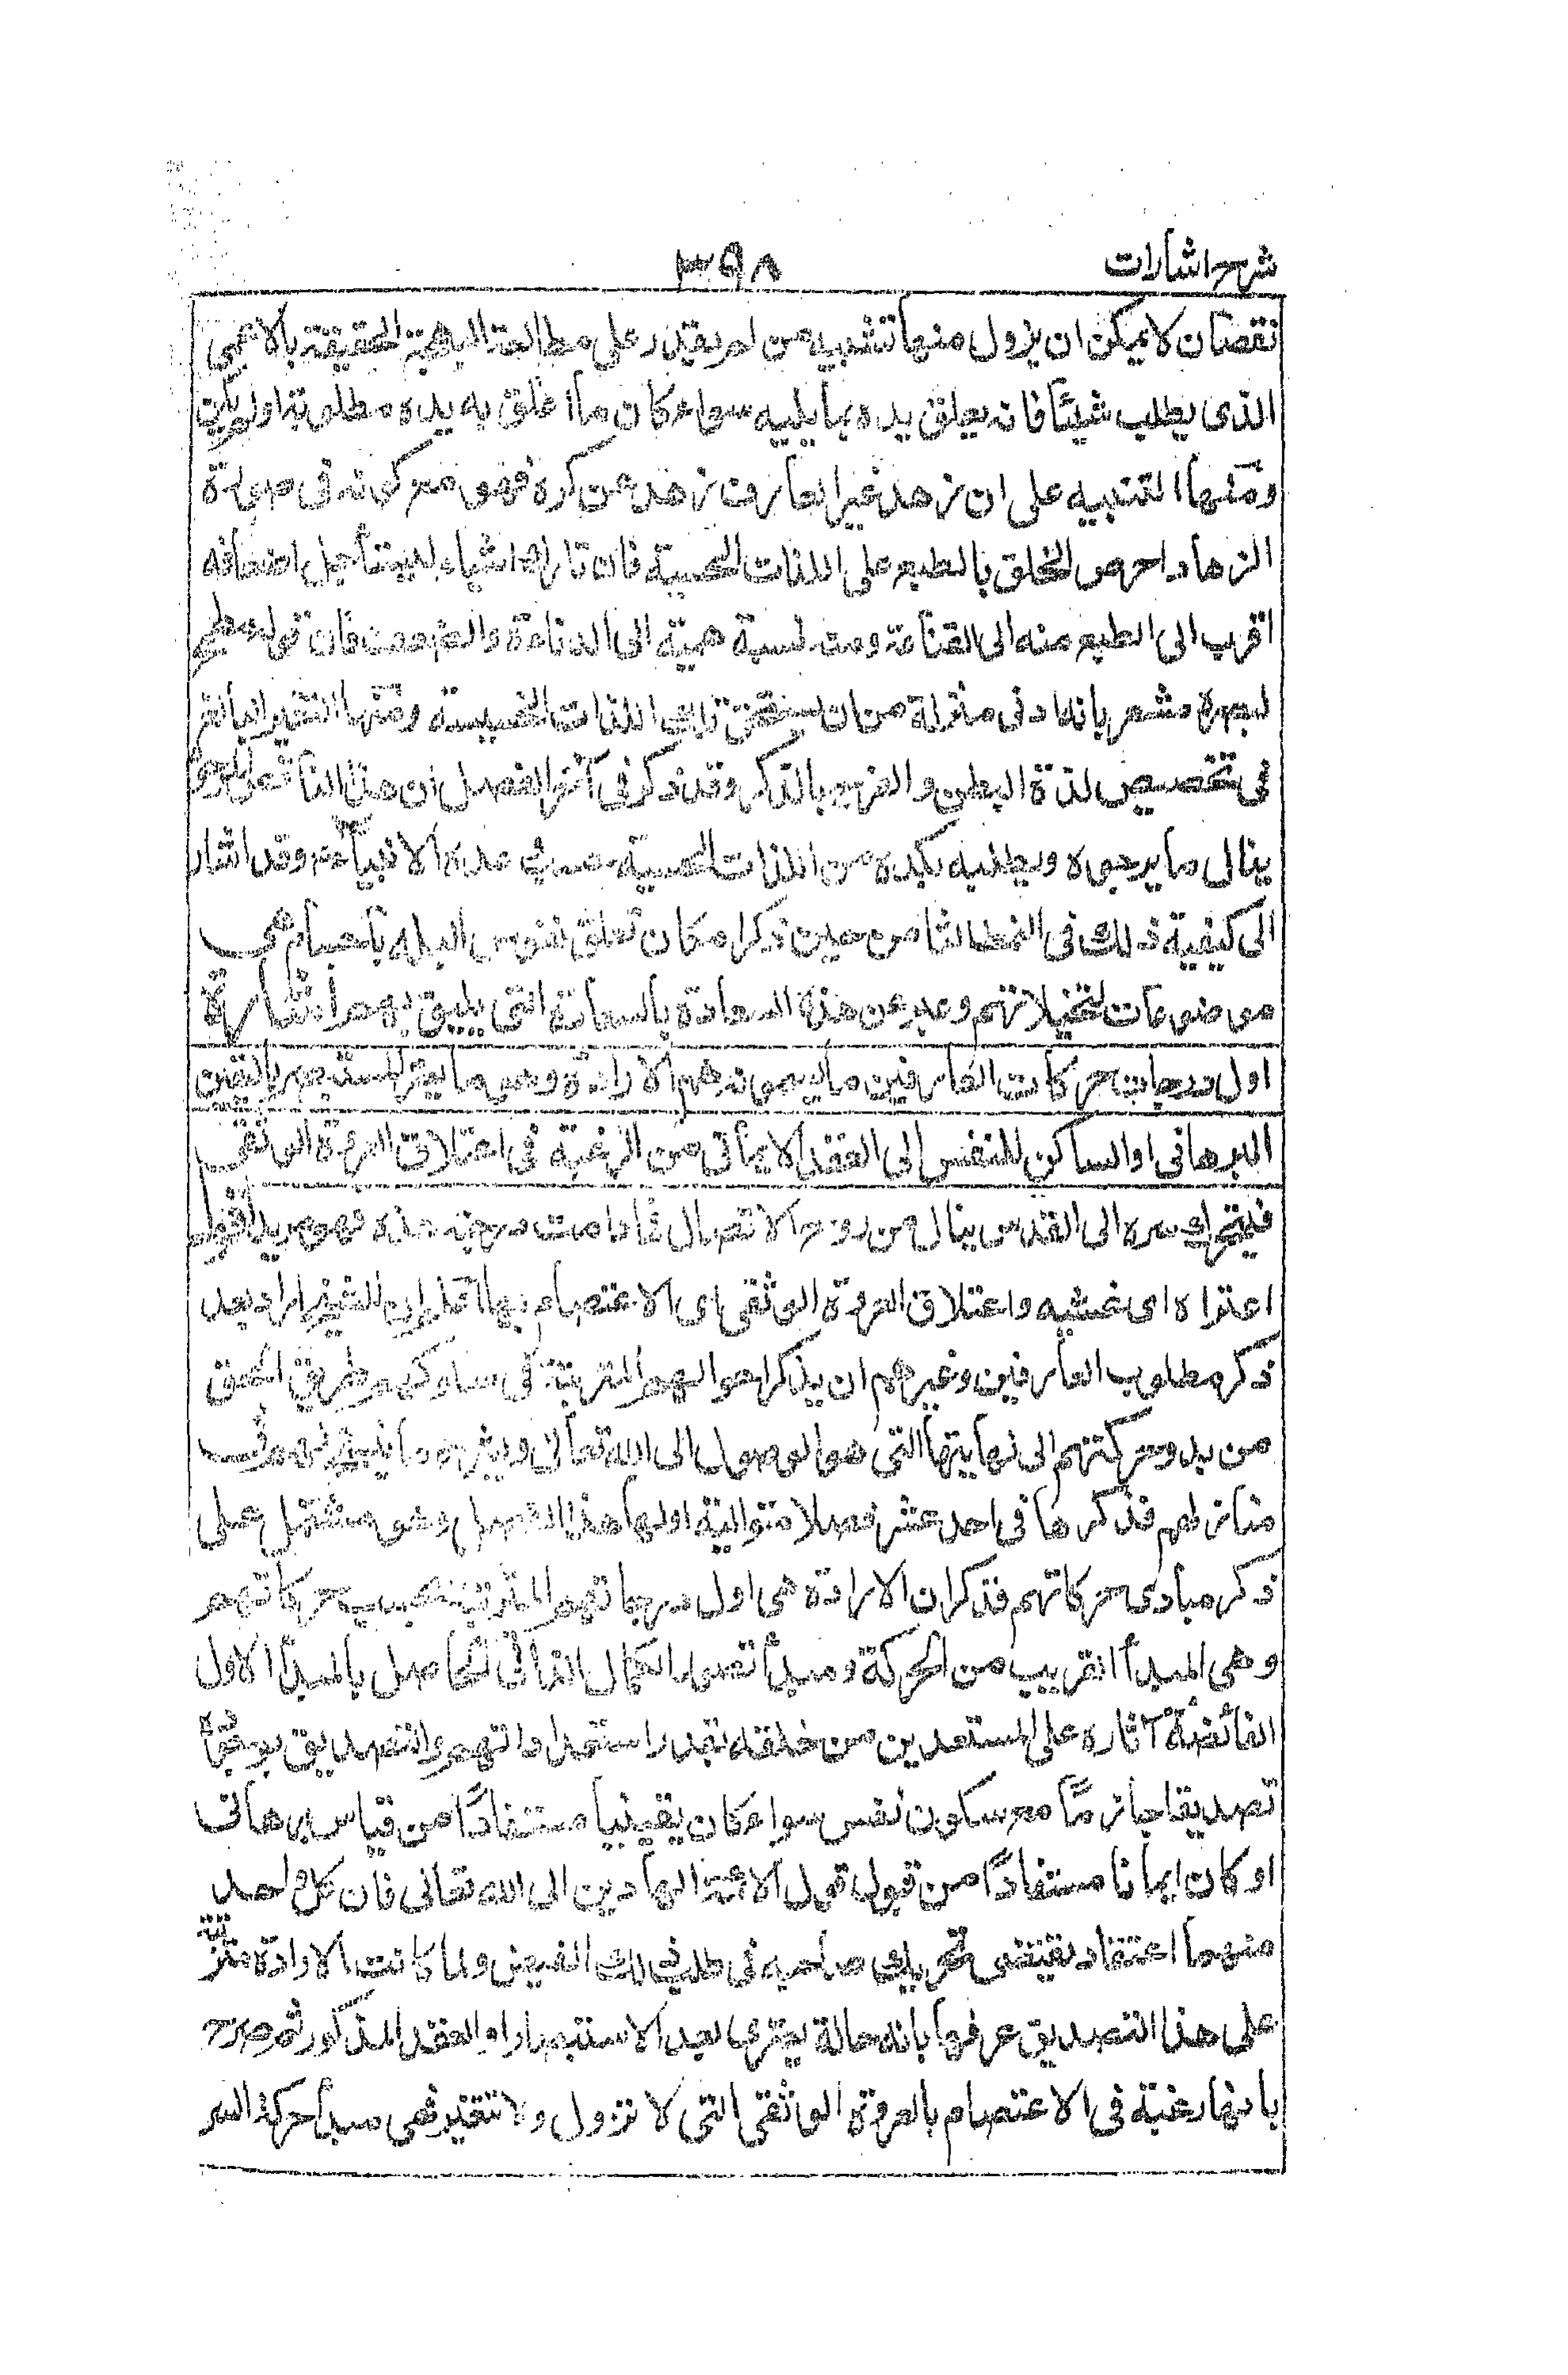 شرح اشارات
٣٩٨
نقصان لا يمكن ان يزول منها تشبيه من لم يقدر على مطالعة البهجة الحقيقية بالاعمى
الذى يطلب شيئا فانه يعلق يده بما يليه سواء كان ما اعلق به يده مطلوبه اولم يكن
ومنها التنبيه على ان زهد غير العارف زهد عن كره فهو مع كونه فى صورة
الزهاد احرص الخلق بالطبع على اللذات الحسية فان تارك شيا ليستأجل اضعافه
اقرب الى الطبع منه الى القناعة ومنه نسبة همته الى الدناءة والضعف فان قوله مطمح
بصره مشعر بانه ادنى منزلة من ان يستحق تلك اللذات الخسيسة ومنها التعبير البالغ
فى تخصيص لذة البطن والفرج بالذكر وقد ذكر فى آخر الفصل ان هذا الناقص المرجو
ينال ما يرجوه ويطلبه بكده من اللذات الحسية حسب وعده الانبياء وقد اشار
الى كيفية ذلك فى النمط الثامن حين ذكر امكان تعلق نفوس البله باجسام هى
موضوعات لتخيلاتهم وعبر عن هذه السعادة بالسعادة التى يليق بهم اشارة
اول درجات حركات العارفين ما يسمونه هم الارادة وهو ما يعترى المستبصر باليقين
البرهانى او الساكن النفس الى العقد الايمانى من الرغبة فى اعتلاق العروة الوثقى
فيتحرك سره الى القدس ينال من روح الاتصال فما دامت درجته هذه فهو مريد اقول
اعتراه اى غشيه واعتلاق العروة الوثقى اى الاعتصام بها اعلم ان الشيخ اراد بعد
ذكر مطلوب العارفين وغيرهم ان يذكر احوالهم المترتبة فى سلوكهم طريق الحق
من بدو حركتهم الى نهايتها التى هو الوصول الى الله تعالى ويشرح ما يسنح لهم فى
منازلهم فذكرها فى احد عشر فصلا متوالية اولها هذا الفصل وهو مشتمل على
ذكر مبادى حركاتهم فذكر ان الارادة هى اول درجاتهم المترتبة بحسب حركاتهم
وهى المبدأ القريب من الحركة ومبدأ تصور الكمال الذاتى الحاصل بالمبدأ الاول
الفائضة آثاره على المستعدين من خلقه بقدر استعداداتهم والتصديق بوجوده
تصديقا جازما مع سكون نفس سواء كان يقينيا مستفادا من قياس برهانى
او كان ايمانا مستفادا من قبول قول الائمة الهادين الى الله تعالى فان كل واحد
منهما اعتقاد يقتضى تحريك صاحبه فى طلب ذلك الفيض ولما كانت الارادة مترتبة
على هذا التصديق عرفها بانه حالة يعترى بعد الاستبصار او العقد المذكور ثم صرح
بانها رغبة فى الاعتصام بالعروة الوثقى التى لا تزول ولا تتغير فهى مبدأ حركة السر